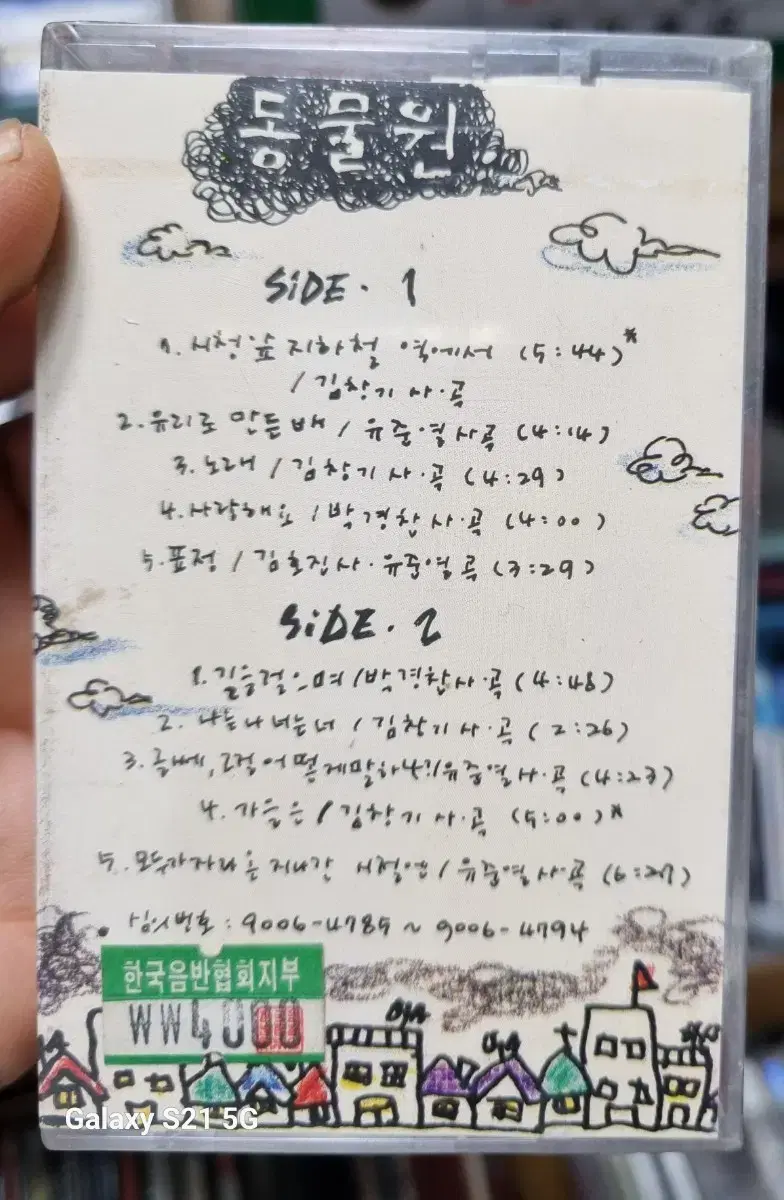 동물원
SiDE · 1
1. 시청 앞 지하철 역에서 (5:44)*
/ 김창기 사·곡
2. 유리로 만든 배 / 유준열 사·곡 (4:14)
3. 노래 / 김창기 사·곡 (4:29)
4. 사랑해요 / 박경찬 사·곡 (4:00)
5. 표정 / 김호진 사·유준열 곡 (3:29)
SiDE · 2
1. 길을 걸으며 / 박경찬 사·곡 (4:48)
2. 나는 나 너는 너 / 김창기 사·곡 (2:26)
3. 글쎄, 그걸 어떻게 말하나?! / 유준열 사·곡 (4:27)
4. 가을은 / 김창기 사·곡 (5:00)*
5. 모두가 지나간 시절엔 / 유준열 사·곡 (6:27)
• 심의번호 : 9006-4785 ~ 9006-4794
한국음반협회지부
WW4000
Galaxy S21 5G